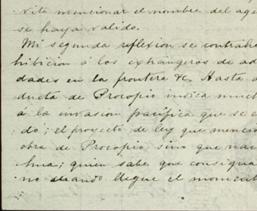 vite mencionar el nombre del age
se haya valido.
Mi segunda reflexion se contrahe
hibicion á los extrangeros de ad
dades en la frontera &c. Hasta a
ducta de Procopio indica much
á la invasion pacífica que se e
dó; el proyecto de ley que mencio
obra de Procopio, sino que
hua; quien sabe que consigna
no cuando llegue el momento